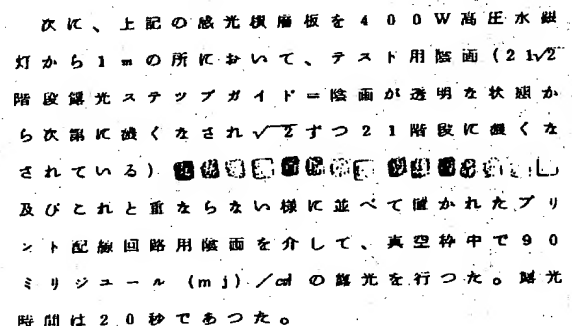 次に、上記の感光積層板を400W高圧水銀
灯から1mの所において、テスト用陰画(21√2
階段露光ステップガイド=陰画が透明な状態か
ら次第に濃くなされ√2ずつ21階段に濃くな
されている)
及びこれと重ならない様に並べて置かれたプリ
ント配線回路用陰画を介して、真空枠中で90
ミリジュール (mj)/cm²の露光を行つた。露光
時間は20秒であつた。